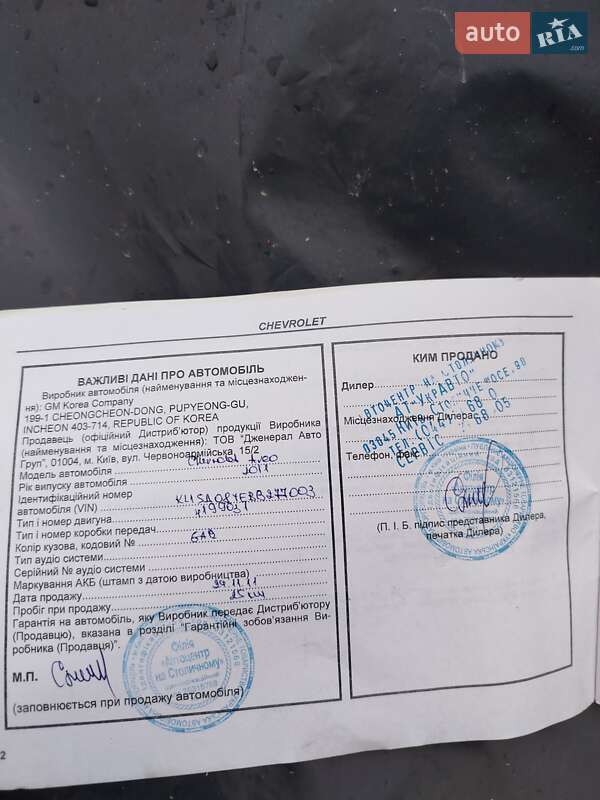 auto RIA .com
CHEVROLET
ВАЖЛИВІ ДАНІ ПРО АВТОМОБІЛЬ
Виробник автомобіля (найменування та місцезнаходжен-
ня): GM Korea Company
199-1 CHEONGCHEON-DONG, PUPYEONG-GU,
INCHEON 403-714, REPUBLIC OF KOREA
Продавець (офіційний Дистриб'ютор) продукції Виробника
(найменування та місцезнаходження): ТОВ "Дженерал Авто
Груп", 01004, м. Київ, вул. Червоноармійська, 15/2
Модель автомобіля Chevrolet Aveo
Рік випуску автомобіля 2011
Ідентифікаційний номер
автомобіля (VIN)
Тип і номер двигуна
Тип і номер коробки передач
Колір кузова, кодовий № GAD
Тип аудіо системи
Серійний № аудіо системи
Маркування АКБ (штамп з датою виробництва)
Дата продажу 29.11.11
Пробіг при продажу 15км
Гарантія на автомобіль, яку Виробник передає Дистриб'ютору
(Продавцю), вказана в розділі "Гарантійні зобов'язання Ви-
робника (Продавця)".
М.П.
Філія
«Автоцентр
на Столичному»
(заповнюється при продажу автомобіля)
2
КИМ ПРОДАНО
Дилер
Місцезнаходження Дилера
Телефон, факс
(П. І. Б. підпис представника Дилера,
печатка Дилера)